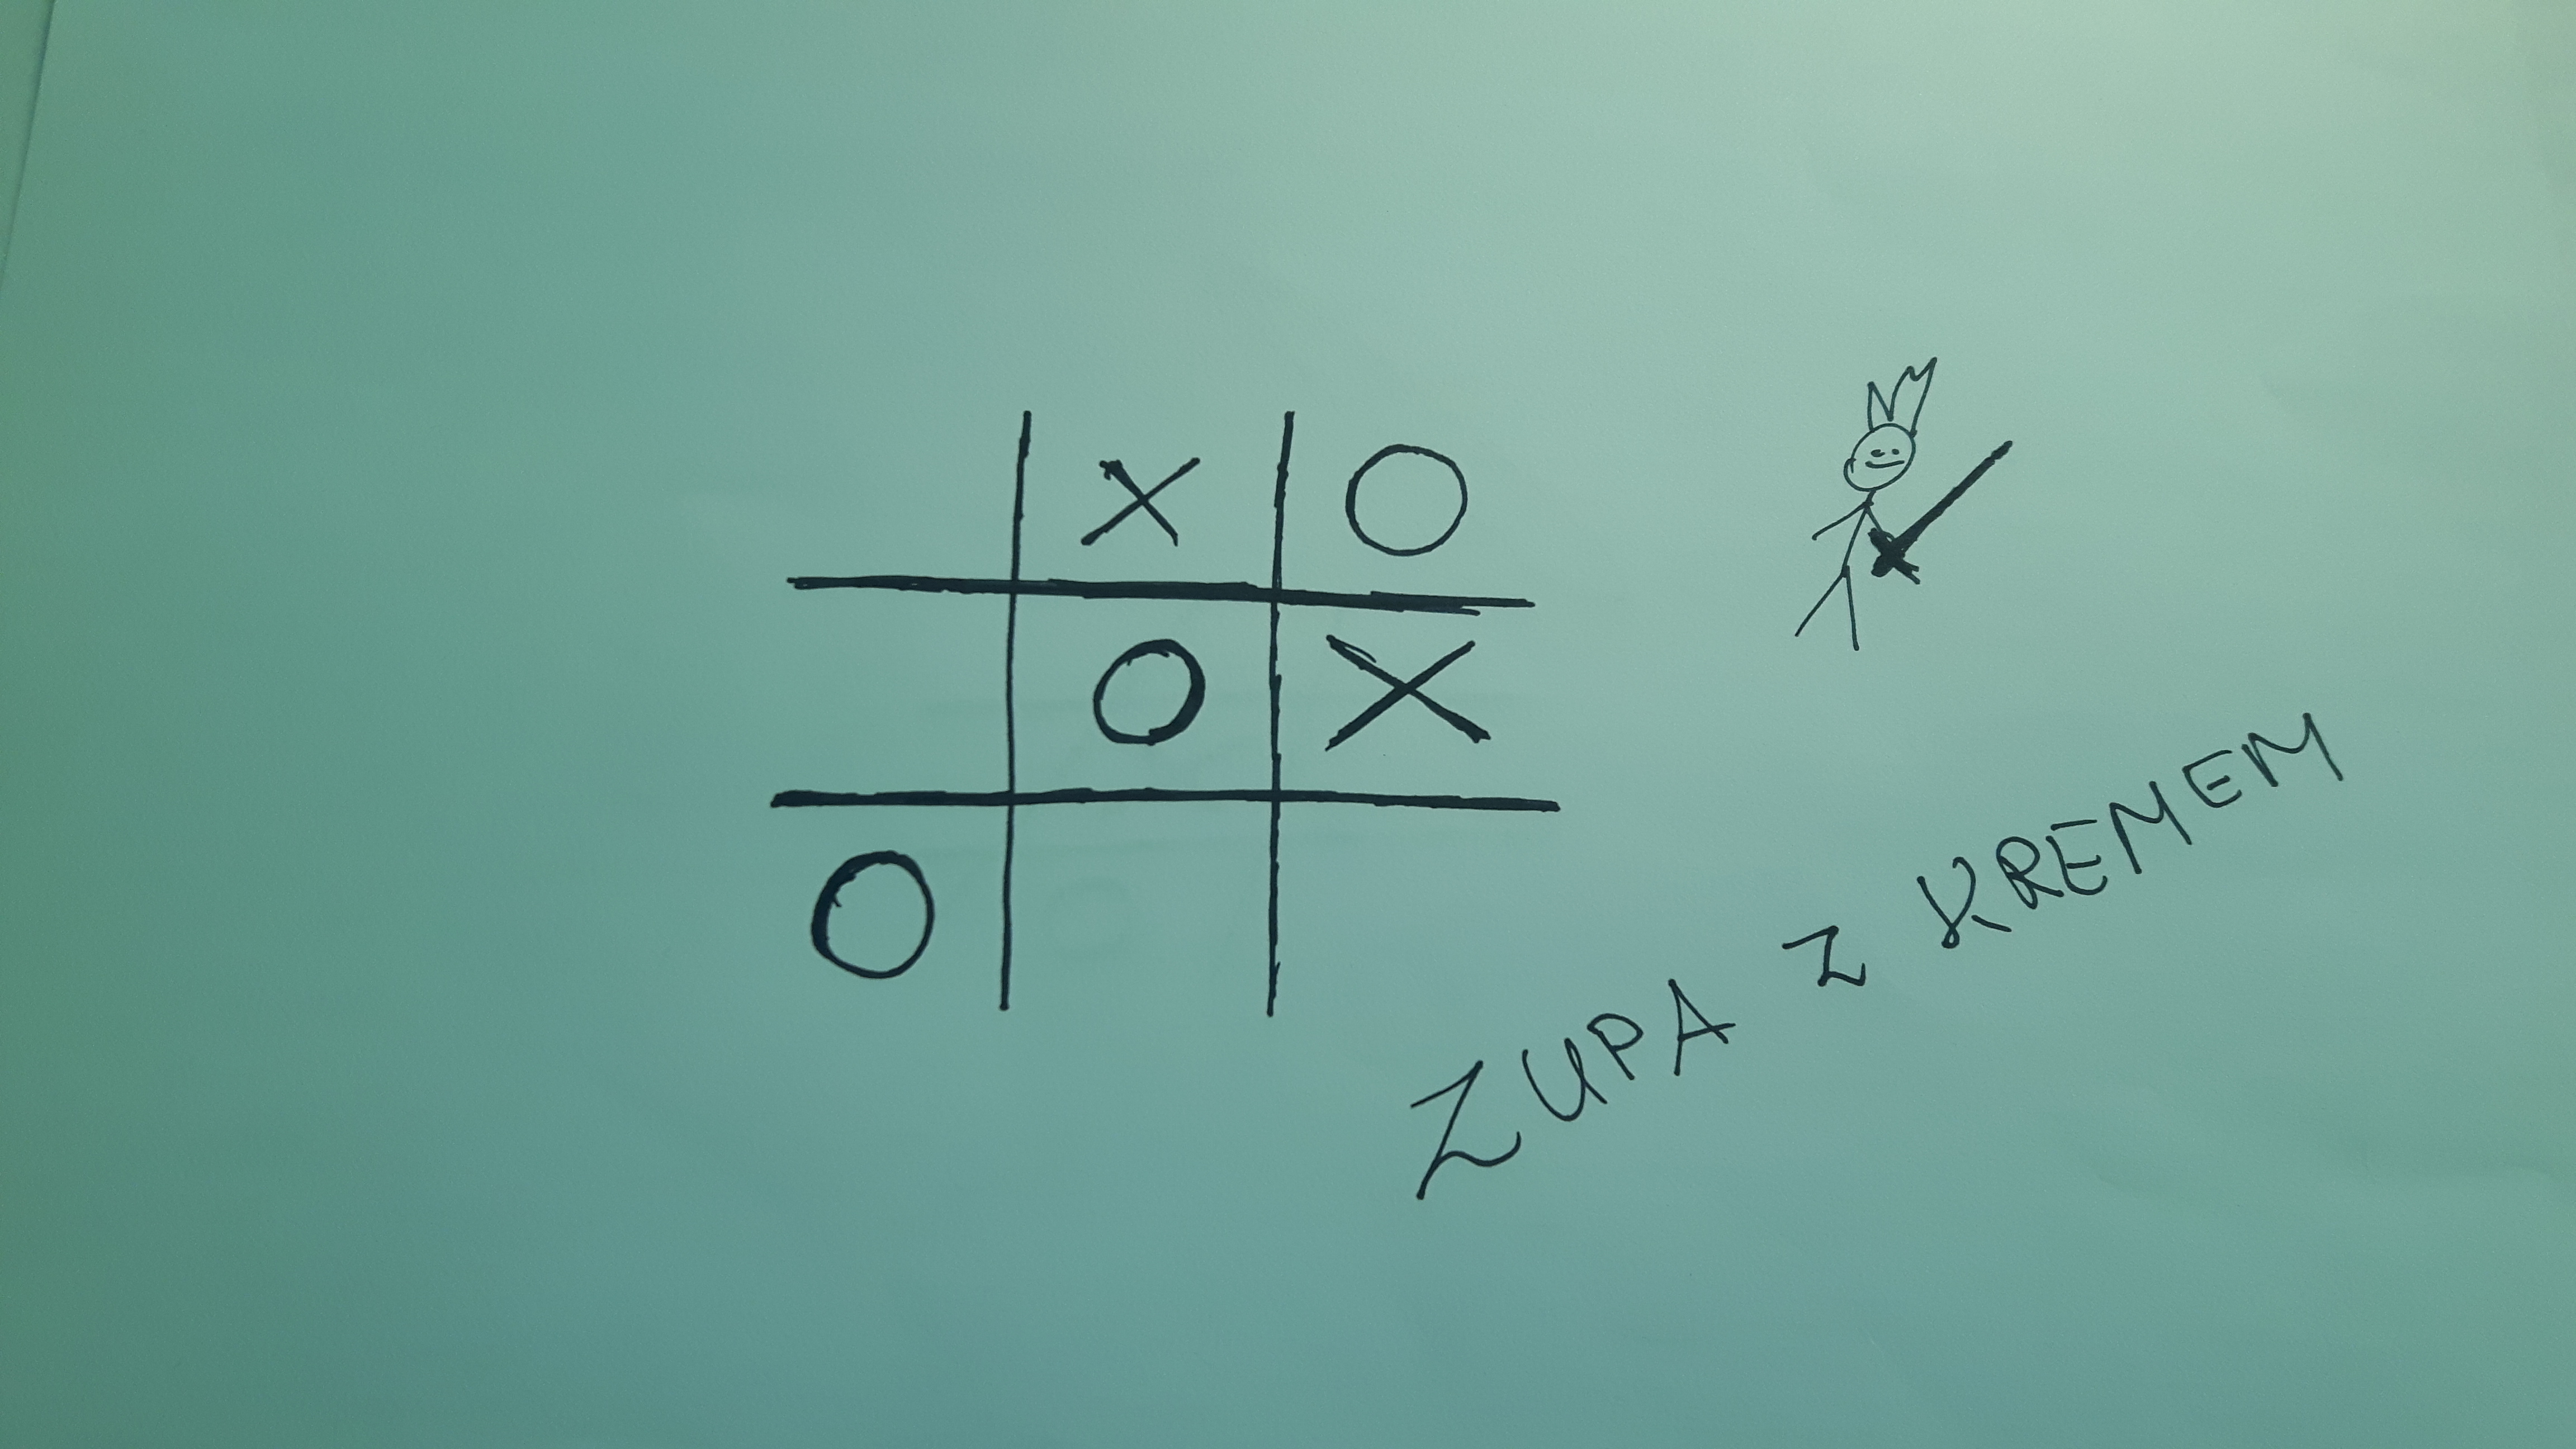 X O
O X
O
ZUPA Z KREMEM